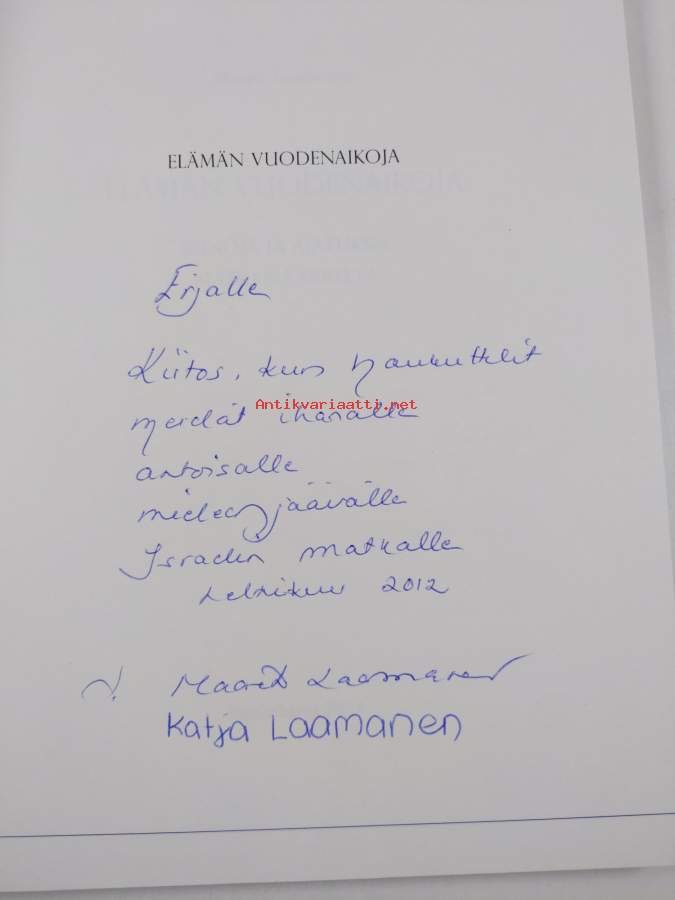 ELÄMÄN VUODENAIKOJA
Erjalle
Kiitos, kun houkuttelit
meidät ihanalle
Antikvariaatti.net
antoisalle
mieleen jäävälle
Israelin matkalle
helmikuu 2012
Maarit Laamanen
Katja Laamanen